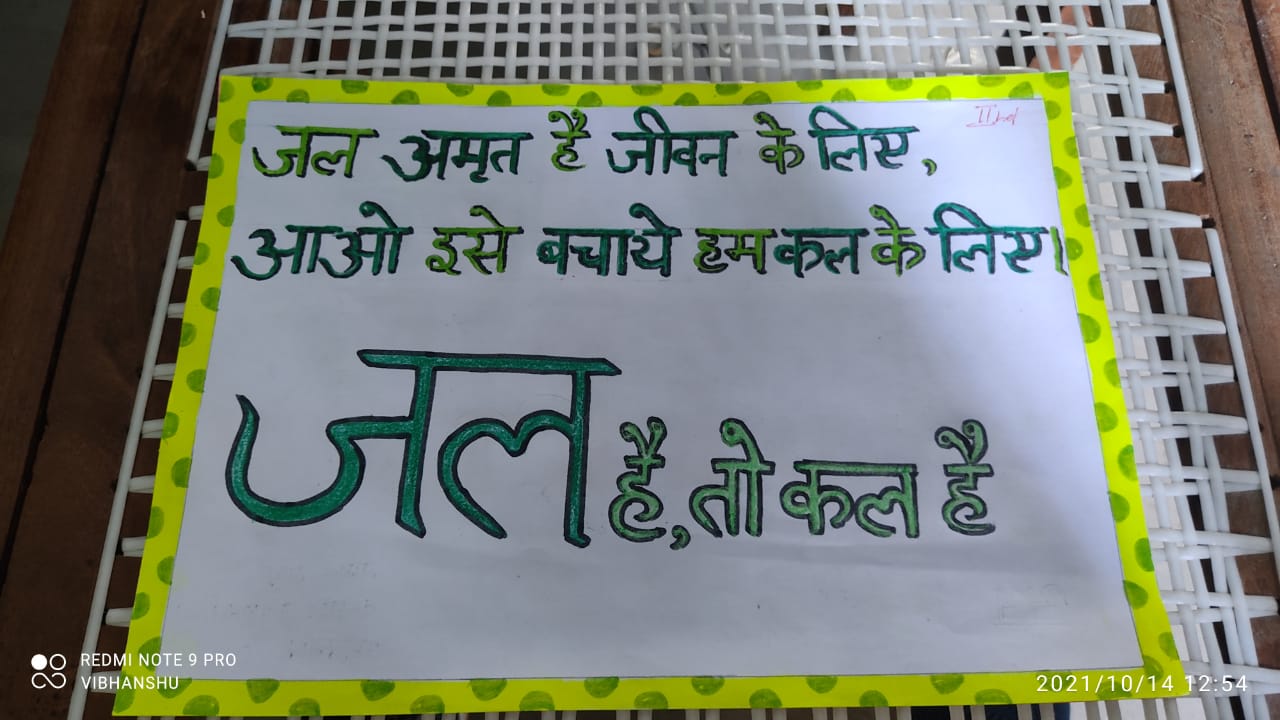 IInd
जल अमृत है जीवन के लिए,
आओ इसे बचाये हम कल के लिए।
जल है, तो कल है
REDMI NOTE 9 PRO
VIBHANSHU
2021/10/14 12:54